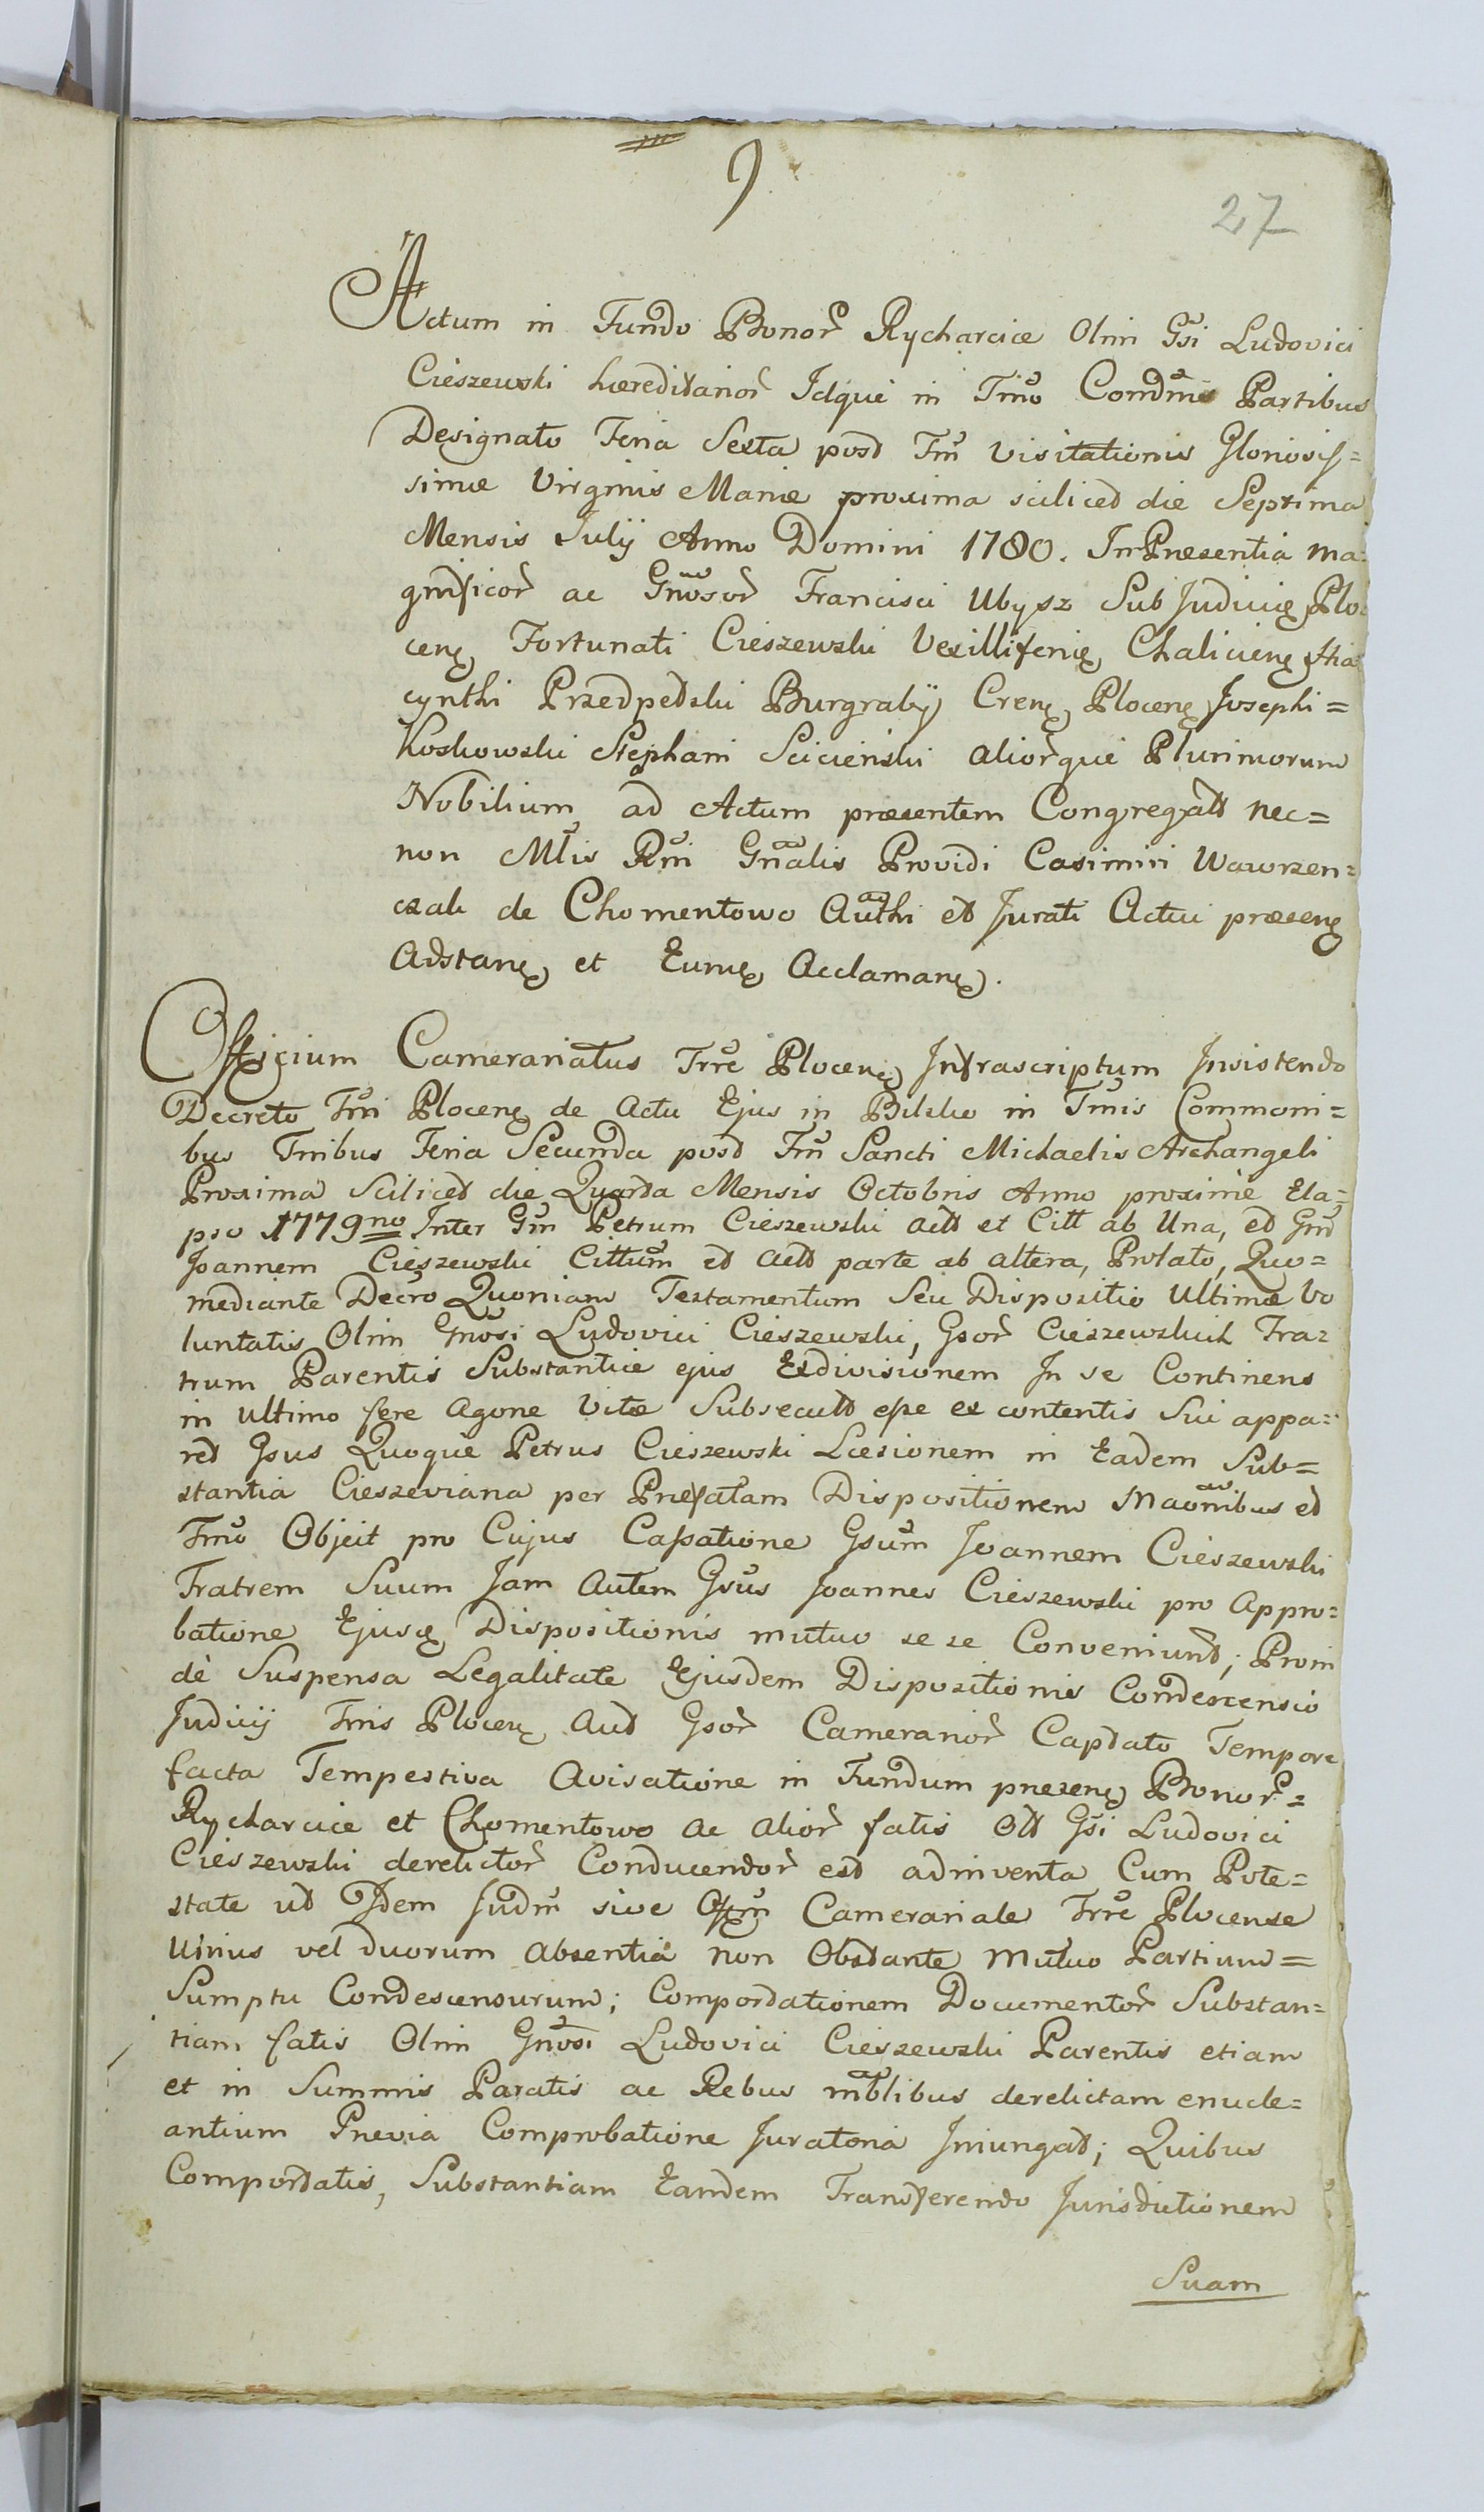 9
27
Actum in Fundo Bonor̃ Rycharcice Olim Gsi Ludovici
Cieszewski hæreditarior̃ Idque in Tmo Condmis Partibus
Designato Feria Sexta post Fm Visitationis Gloriosis=
simæ Virginis Mariæ proxima scilicet die Septima
Mensis Julÿ Anno Domini 1780. In Præsentia ma=
gnificor̃ ac Gnosor̃ Francisci Ubysz SubJudicię Plo=
cenę Fortunati Cieszewski Vexilliferię Chalicienę Hia
cynthi Przedpełski Burgrabÿ Crenę Plocenę Josephi=
Koskowski Stephani Scicieński aliorq̃ue Plurimorum
Nobilium ad Actum præsentem Congregatt nec=
non Mtis Rm Gnalis Providi Casimiri Wawrzen=
czak de Chomentowo Authi et Jurati Actui præsenę
Adstanę et Eumę Acclamanę.
Officium Camerariatus Trre Plocenę Infrascriptum Insistendo
Decreto Tmi Plocenę de Actu Ejus in Bilsko in Tmis Commoni=
bus Tmibus Feria Secunda post Fm Sancti Michaelis Archangeli
Proxima Scilicet die Quarta Mensis Octobris Anno proxime Ela=
pso 1779no Inter Gm Petrum Cieszewski Actt et Citt ab Una, et Gm
Joannem Cieszewski Cittum et Actt parte ab altera, Prolato, Quo=
mediante Decro Quoniam Testamentum Seu Dispositio Ultimæ Vo
luntatis Olim Gnosi Ludovici Cieszewski, Gsor̃ Cieszewskich Fra=
trum Parentis Substantiæ ejus Exdivisionem In se Continens
in Ultimo fere Agone Vitæ Subsecutt esse ex contentis Sui appa=
ret Gsus Quoque Petrus Cieszewski Læsionem in Eadem Sub=
stantia Cieszeviana per Præfatam Dispositionem Maonibus et
Tmo Objeit pro Cujus Cassatione Gsum Joannem Cieszewski
Fratrem Suum Jam Autem Gsus Joannes Cieszewski pro Appro=
batione Ejusę Dispositionis mutuo sese Conveniunt; Proin
dè Suspensa Legalitate Ejusdem Dispositionis Condescensio
Judicÿ Tmis Plocenę Aut Gsor̃ Camerarior̃ Captato Tempore
facta Tempestiva Avisatione in Fundum præsenę Bonor̃=
Rycharcice et Chomentowo ac Alior̃ fatis Ott Gsi Ludovici
Cieszewski derelictor̃ Conducendor̃ est adinventa Cum Pote=
state ut Idem Judm sive Offm Camerariale Trre Plocense
Unius vel duorum absentiâ non Obstante mutuo Partium=
Sumptu Condescensurum; Comportationem Documentor̃ Substan=
tiam fatis Olim Gnosi Ludovici Cieszewski Parentis etiam
et in Summis Paratis ac Rebus mblibus derelictam enucle=
antium Prævia Comprobatione Juratoria Iniungat; Quibus
Comportatis, Substantiam Eandem Transferendo Jurisdictionem
Suam